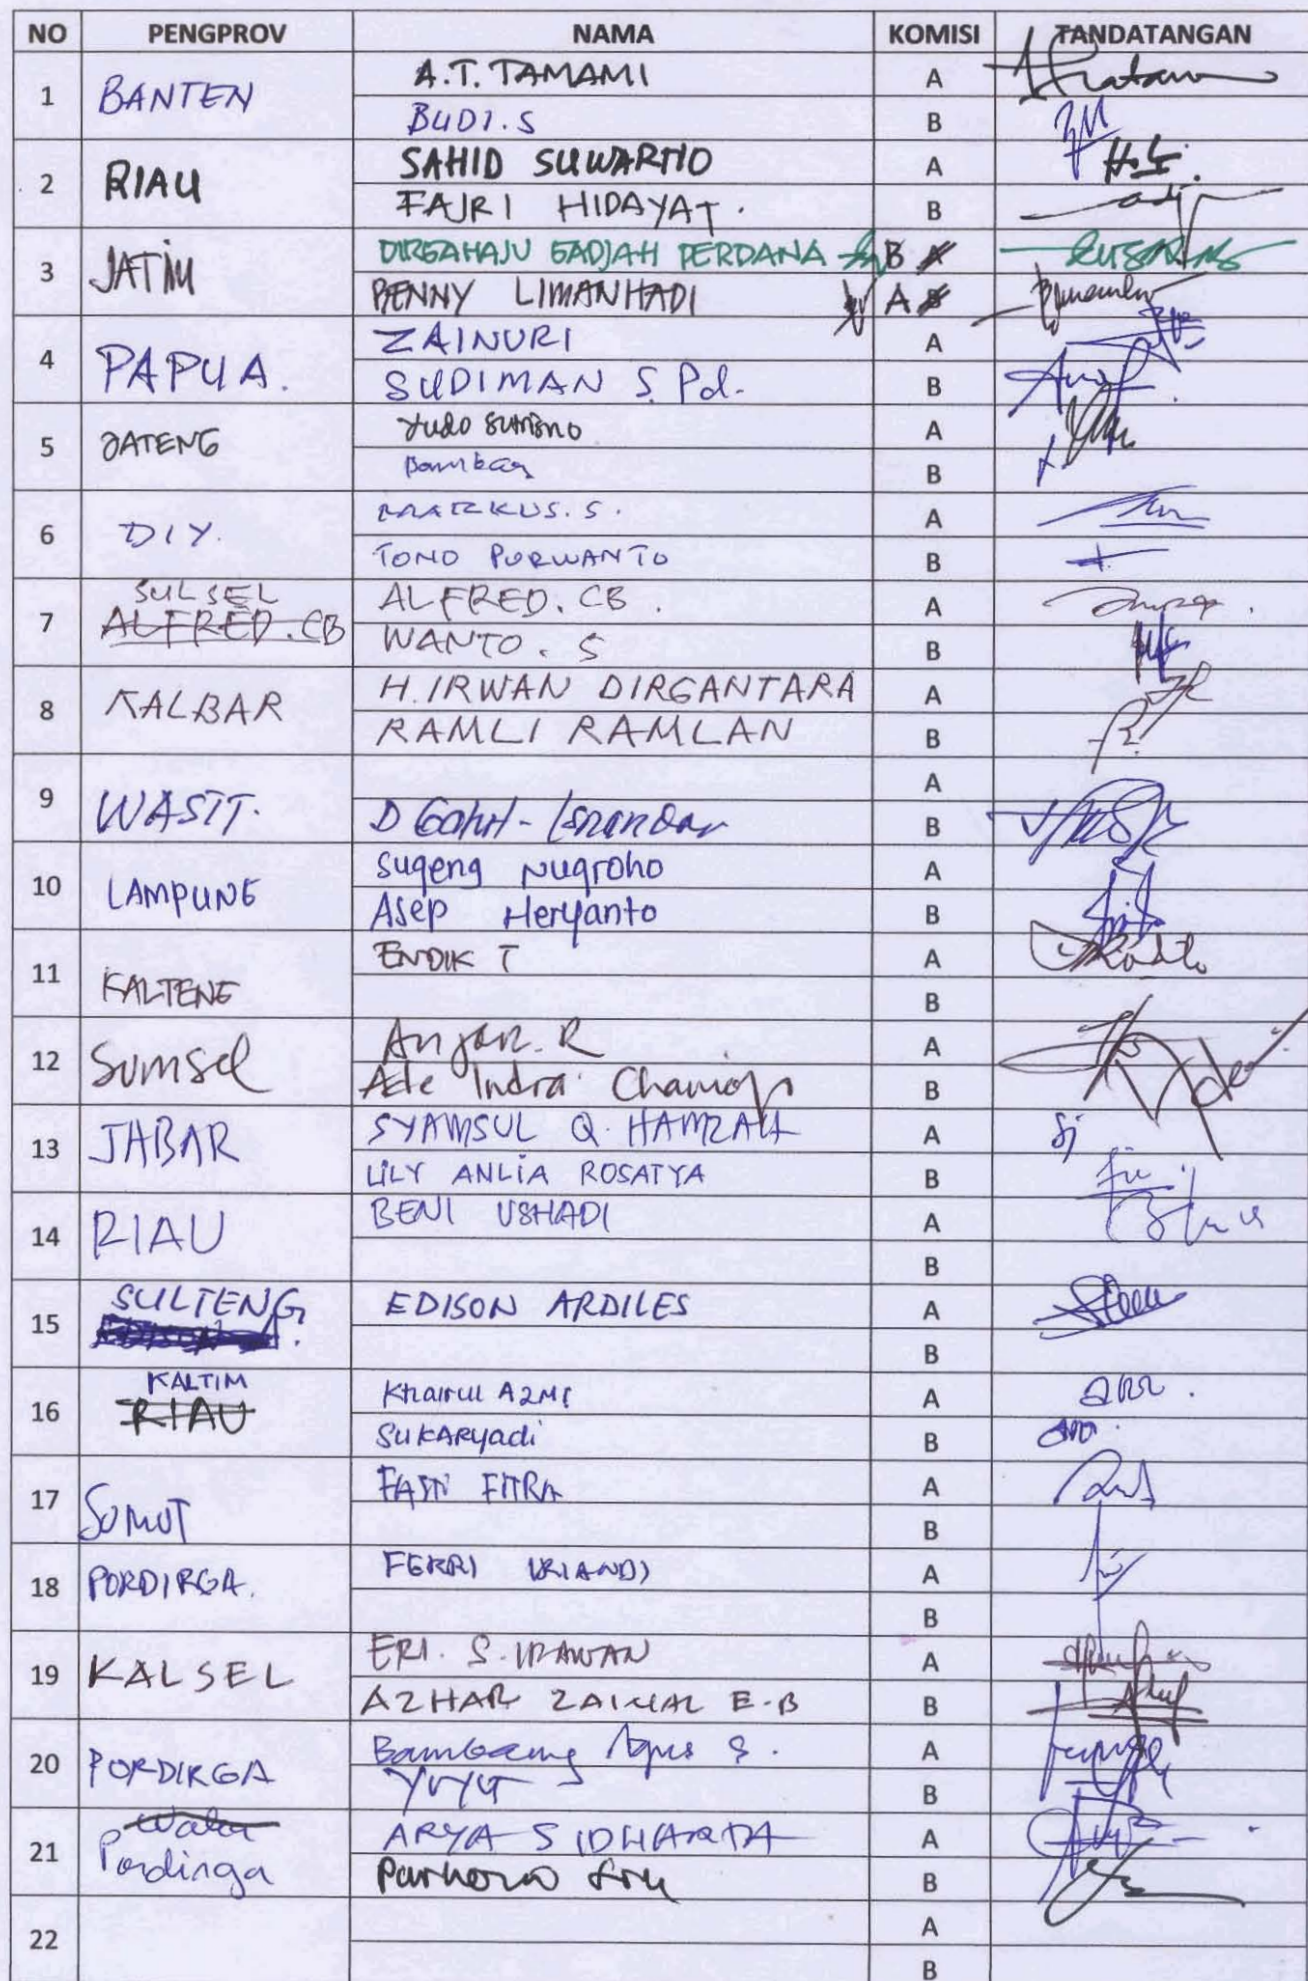 NO PENGPROV NAMA KOMISI TANDATANGAN
1 BANTEN A.T. TAMAMI A
BUDI.S B
2 RIAU SAHID SUWARTIO A
FAJRI HIDAYAT. B
3 JATIM DIRGAHAJU GADJAH PERDANA B A
BENNY LIMANHADI A B
4 PAPUA. ZAINURI A
SUDIMAN S.Pd. B
5 JATENG A
Bambang B
6 DIY. MARKUS.S. A
TONO PURWANTO B
7 SULSEL ALFRED.CB. A
ALFRED.CB WANTO.S B
8 KALBAR H.IRWAN DIRGANTARA A
RAMLI RAMLAN B
9 A
D B
10 LAMPUNG Sugeng Nugroho A
Asep Heryanto B
11 KALTENG ENDIK T A
B
12 Sumsel Anjar. R A
Ade Indra B
13 JABAR SYAMSUL Q. HAMZAH A
LILY ANLIA ROSATYA B
14 RIAU BENI USHADI A
B
15 SULTENG EDISON ARDILES A
B
16 KALTIM Khairul AZMI A
RIAU SUKARyadi B
17 SUMUT FITRA A
B
18 PORDIRGA. FERRI A
B
19 KALSEL ERI. S. IRAWAN A
AZHAR ZAINAL E.B B
20 PORDIRGA Bambang Agus S. A
YUYU B
21 Pordirga ARYA SIDHARTA A
B
22 A
B